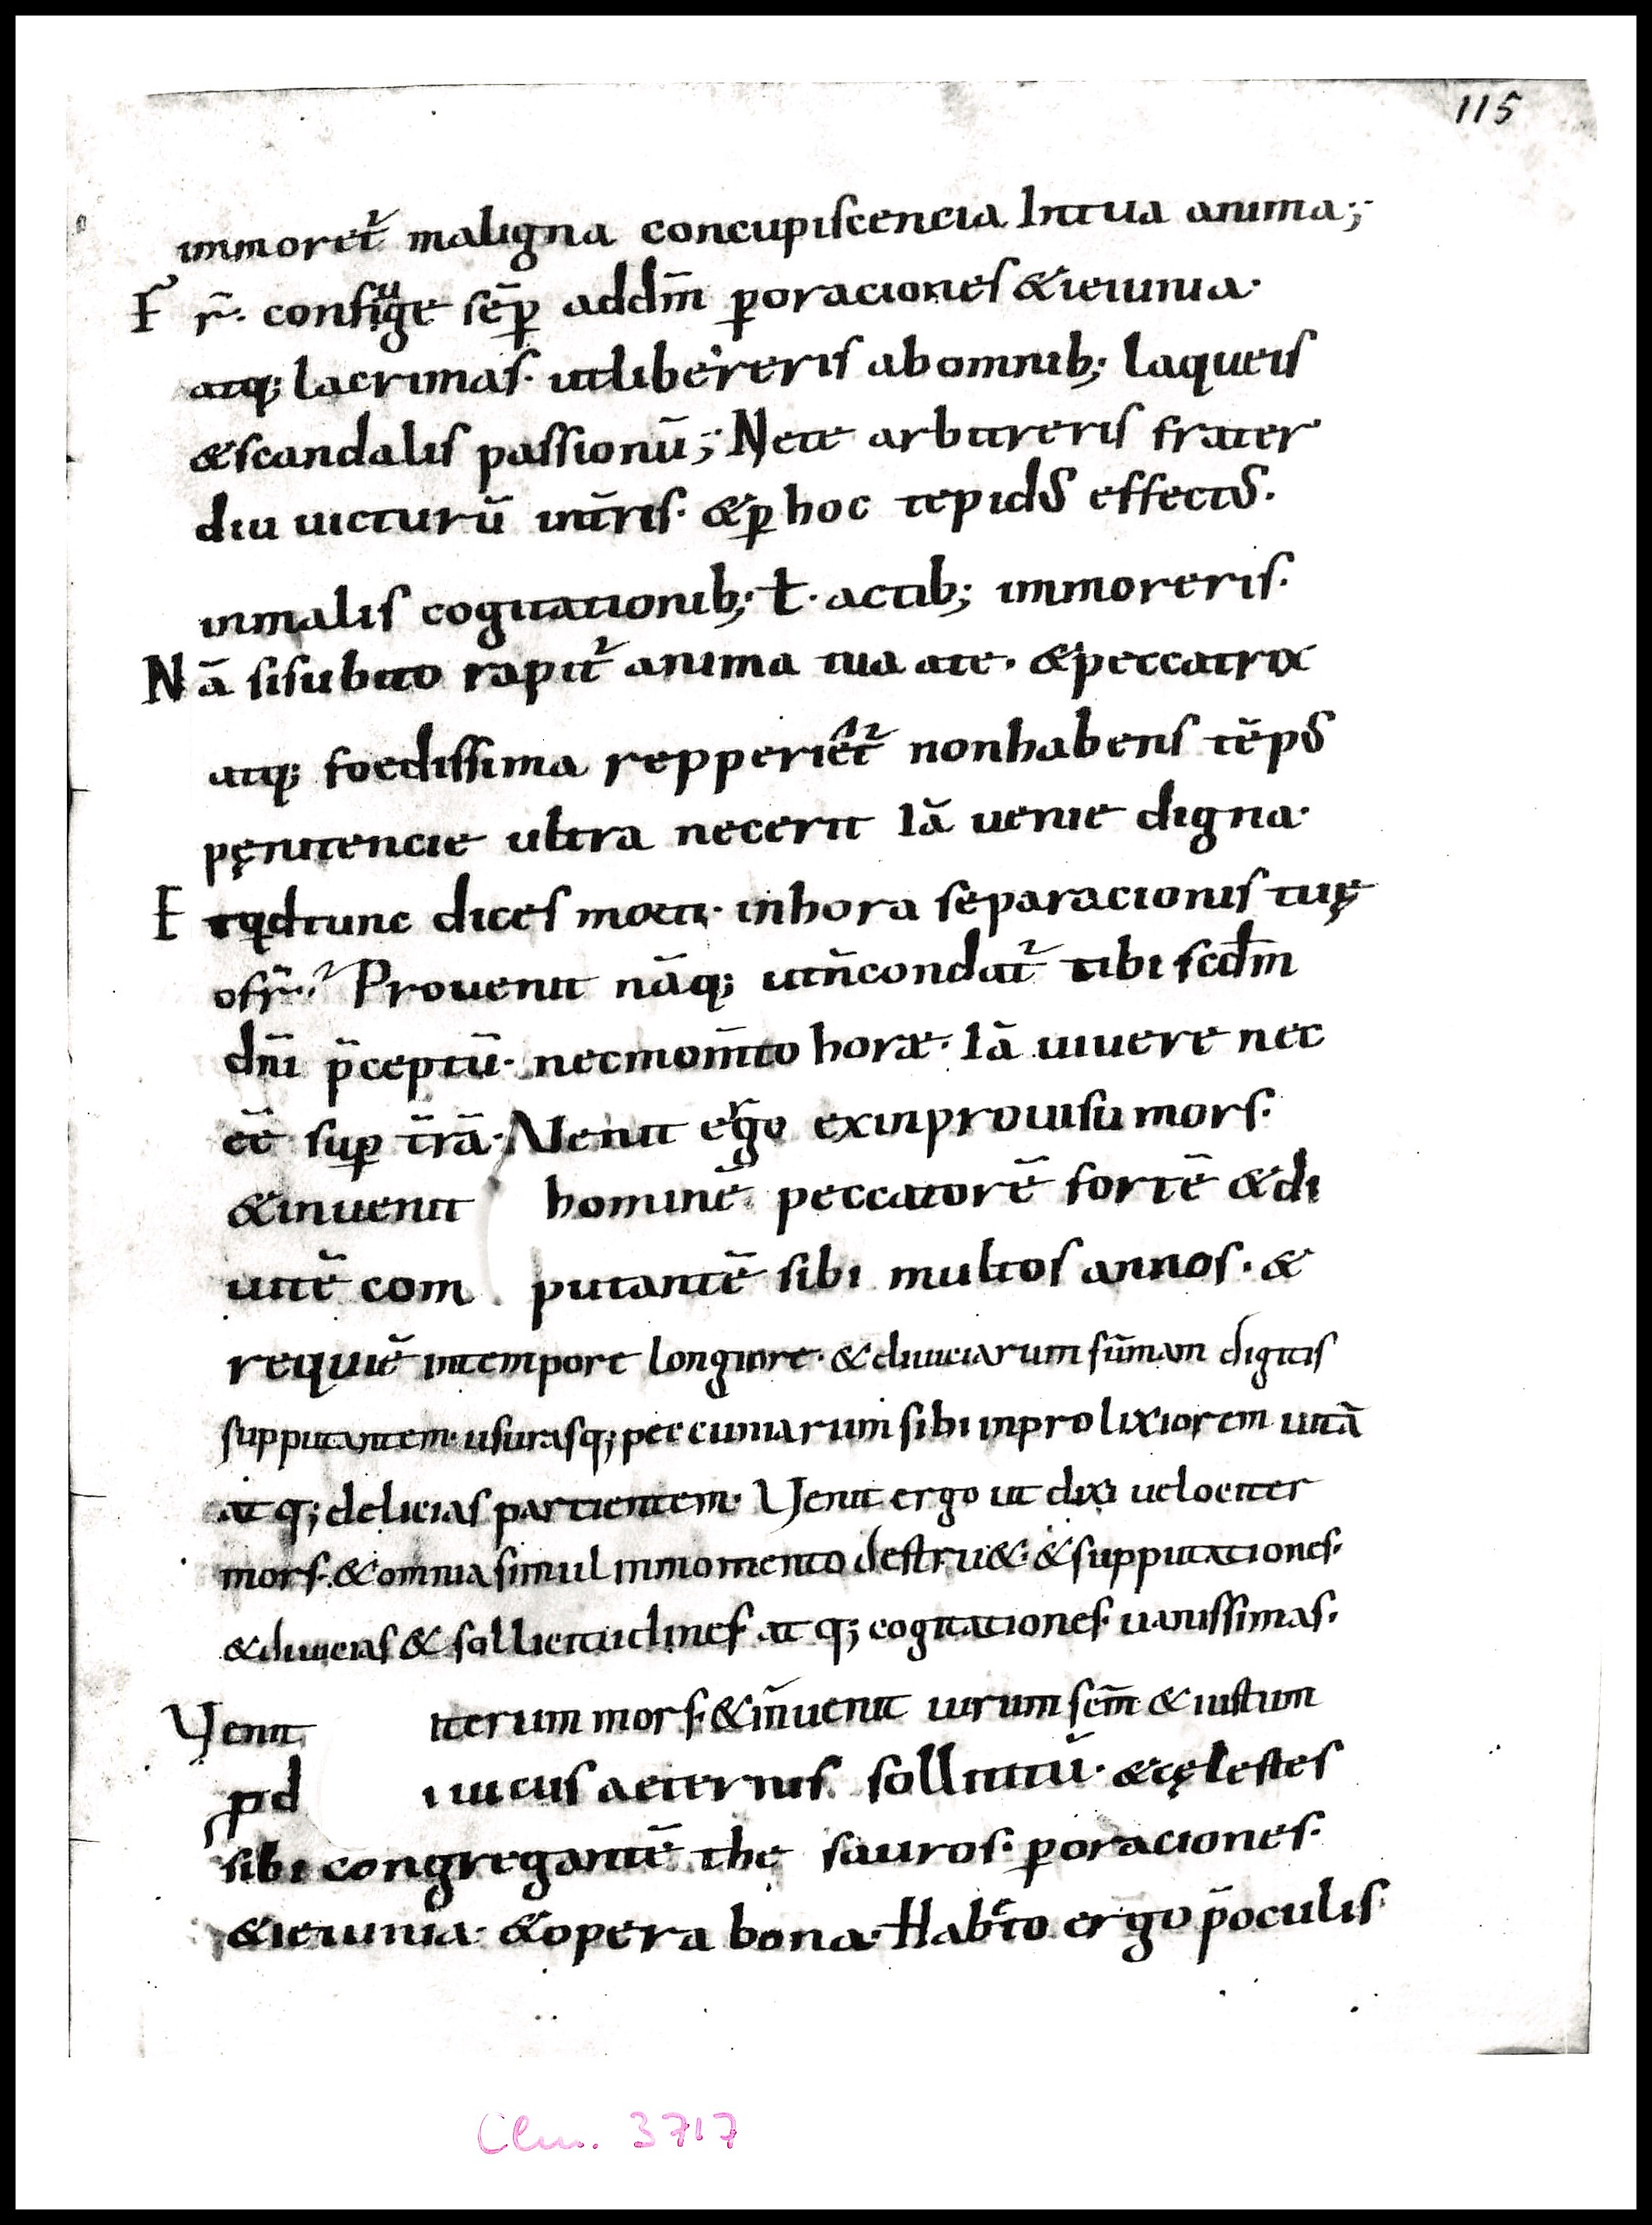 115
immoret᷑ maligna concupiscencia Intua anima;
Fr̄. confuge sēp addm̄ ꝑoraciones &ieiunia·
atq; lacrimas· utliberereris abomnib; laqueis
&scandalis passionū; Nete arbitreris frater
diu uicturū int̄ris· &ꝑ hoc tepidꝰ effectꝰ·
inmalis cogitationib; ł· actib; immoreris·
Nā sisubito rapit᷑ anima tua ate· &peccatrix
atq; foedissima repperiet᷑ nonhabens tēpꝰ
pęnitencie ultra necerit Iā uenie digna·
Etqdtunc dices moxti· inhora separacionis tuę
ofr̄? Prouenit nāq; utn̄condat᷑ tibi scdm̄
dn̄i p̄ceptū· necmom̄to horæ· Iā uiuere nec
eē suꝑ t̄rā· Uenit ergo exinprouisu mors·
&inuenit hominē peccatorē fortē &di
uitē com putantē sibi multos annos· &
requiē intempore longiore· &diuiciarum sūmam digitis
supputantem· usurasq; peccuniarum sibi inprolixiorem uitā
at q; delicias partientem· Uenit ergo ut dixi uelociter
mors· &omnia simul inmomento destru&· &supputationes·
&diuicias & sollicitudines at q; cogitationes· uanissimas·
Uenit iterum mors· &īnuenit uirum scm̄ & iustum
ꝓ d iuicus aeternis sollicitū· &cęlestes
sibi congregantē the sauros· ꝑoraciones·
&ieiunia· &opera bona· Habeto ergo p̄oculis
Clm. 3717